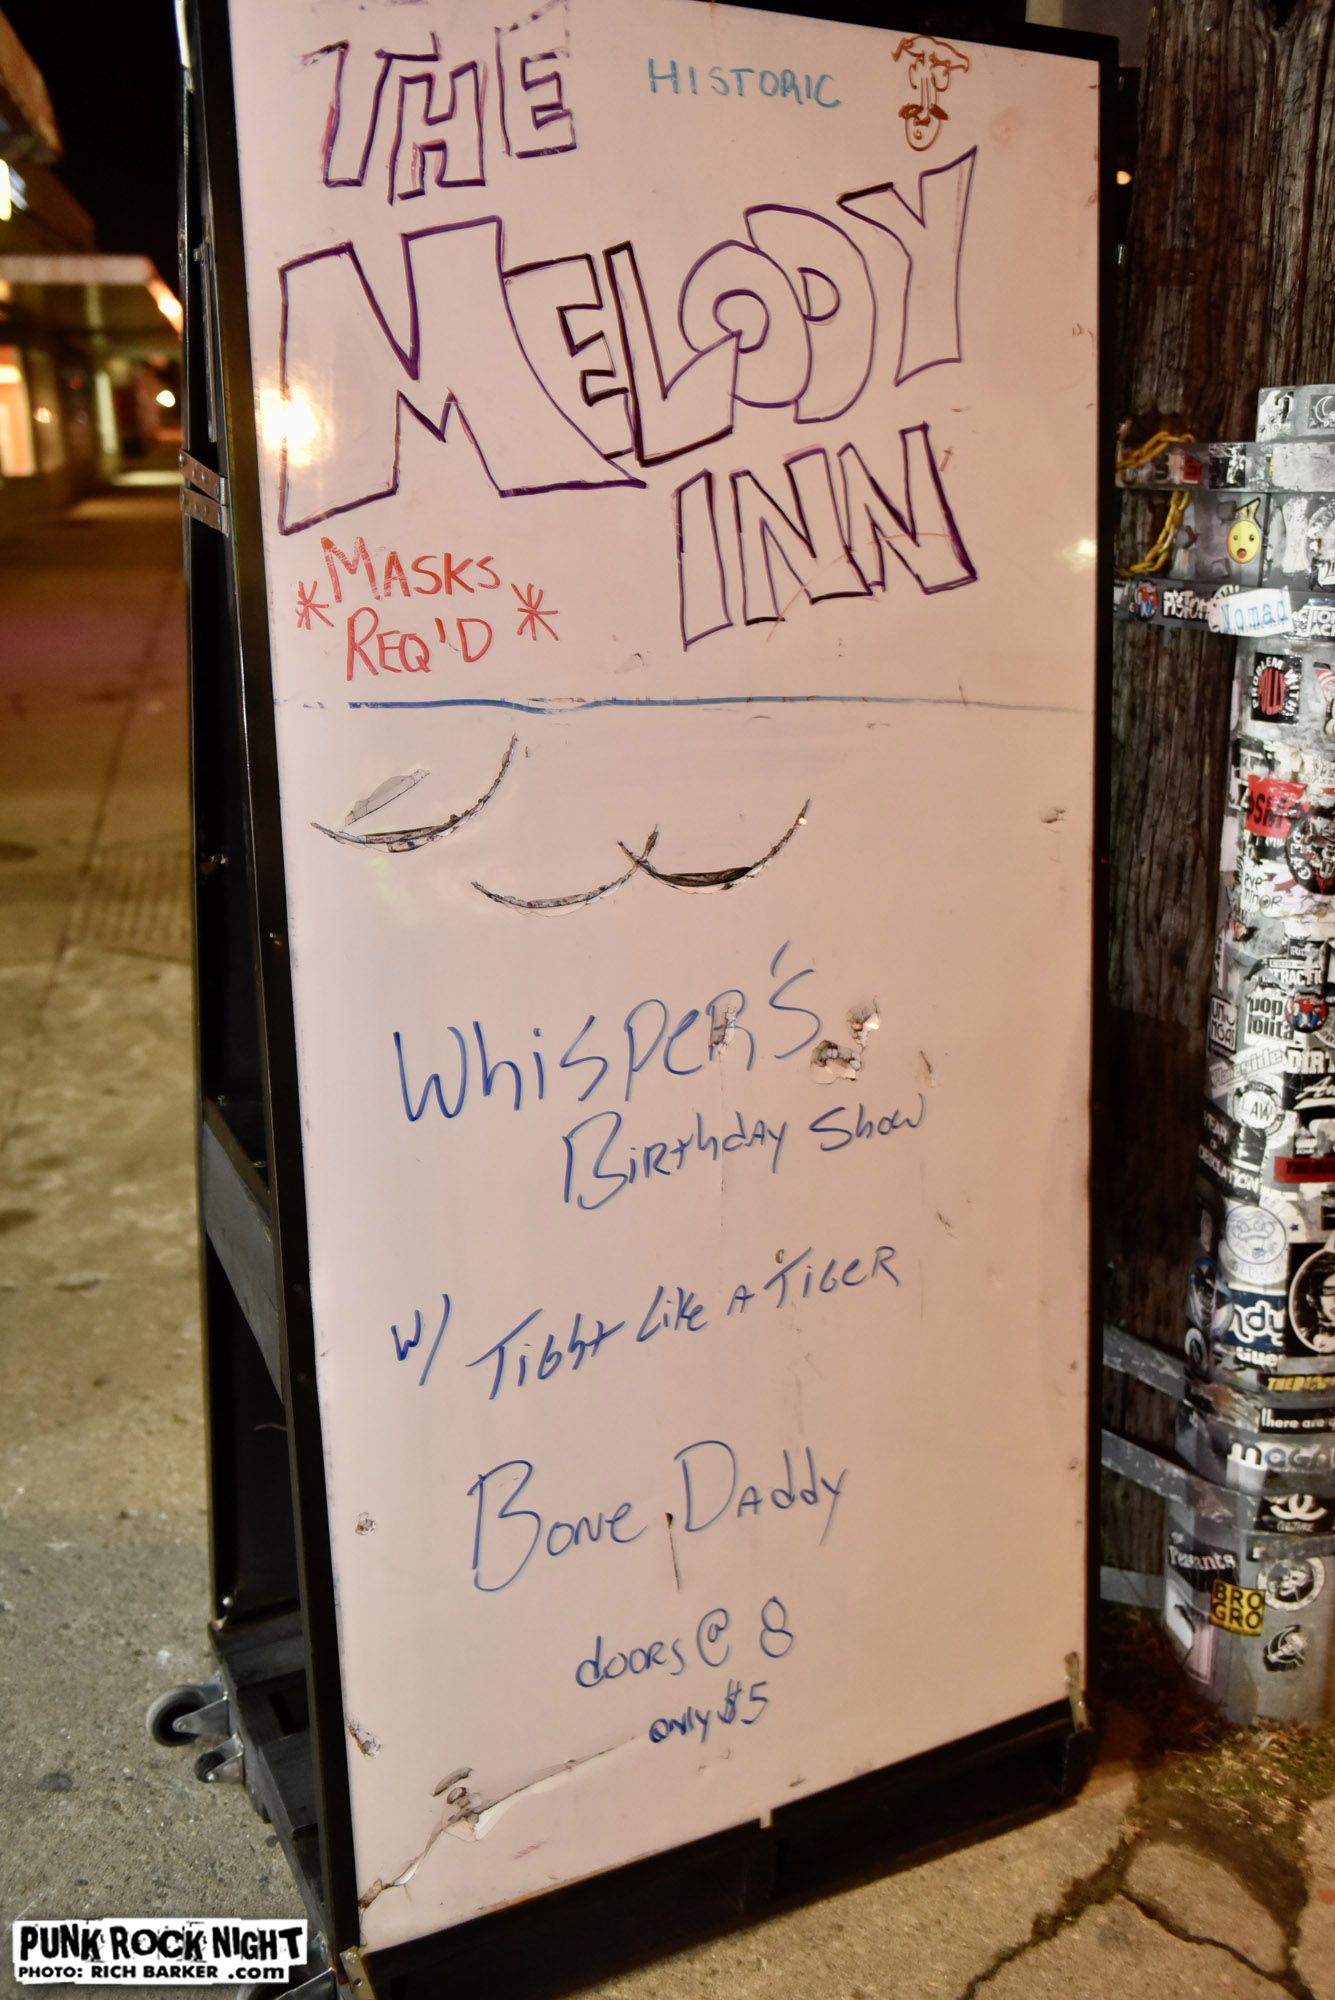 THE
HISTORIC
MELODY
INN
*MASKS
REQ'D*
Whisper's
Birthday Show
w/ Tight Like A Tiger
Bone Daddy
doors @ 8
only $5
Nomad
pop
lolita
LAW
BRO
GRO
Peasants
PUNK ROCK NIGHT
PHOTO: RICH BARKER .com